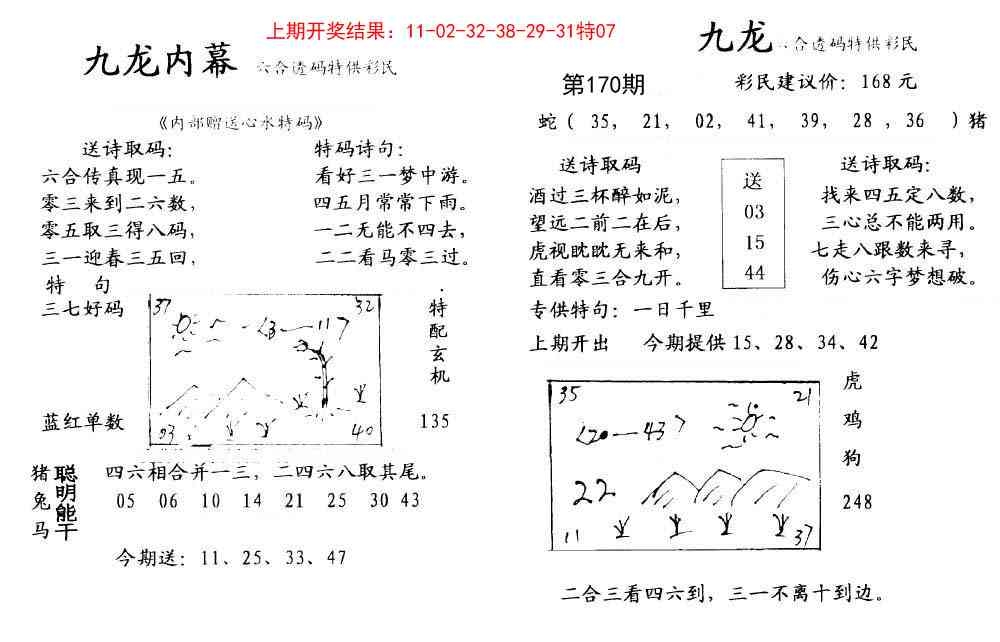 上期开奖结果：11-02-32-38-29-31特07
九龙内幕 六合透码特供彩民
《内部赠送心水特码》
送诗取码：
六合传真现一五。
零三来到二六数，
零五取三得八码，
三一迎春三五回，
特 句
三七好码
蓝红单数
特码诗句：
看好三一梦中游。
四五月常常下雨。
一二无能不四去，
二二看马零三过。
37 32
<3—11>
03 40
特配玄机
135
猪兔马
聪明能干
四六相合并一三，二四六八取其尾。
05 06 10 14 21 25 30 43
今期送：11、25、33、47
九龙 六合透码特供彩民
第170期
彩民建议价：168元
蛇（ 35， 21， 02， 41， 39， 28 ，36 ）猪
送诗取码
酒过三杯醉如泥，
望远二前二在后，
虎视眈眈无来和，
直看零三合九开。
送
03
15
44
送诗取码：
找来四五定八数，
三心总不能两用。
七走八跟数来寻，
伤心六字梦想破。
专供特句：一日千里
上期开出 今期提供15、28、34、42
35 21
<20—43>
22
11 37
虎
鸡
狗
248
二合三看四六到，三一不离十到边。